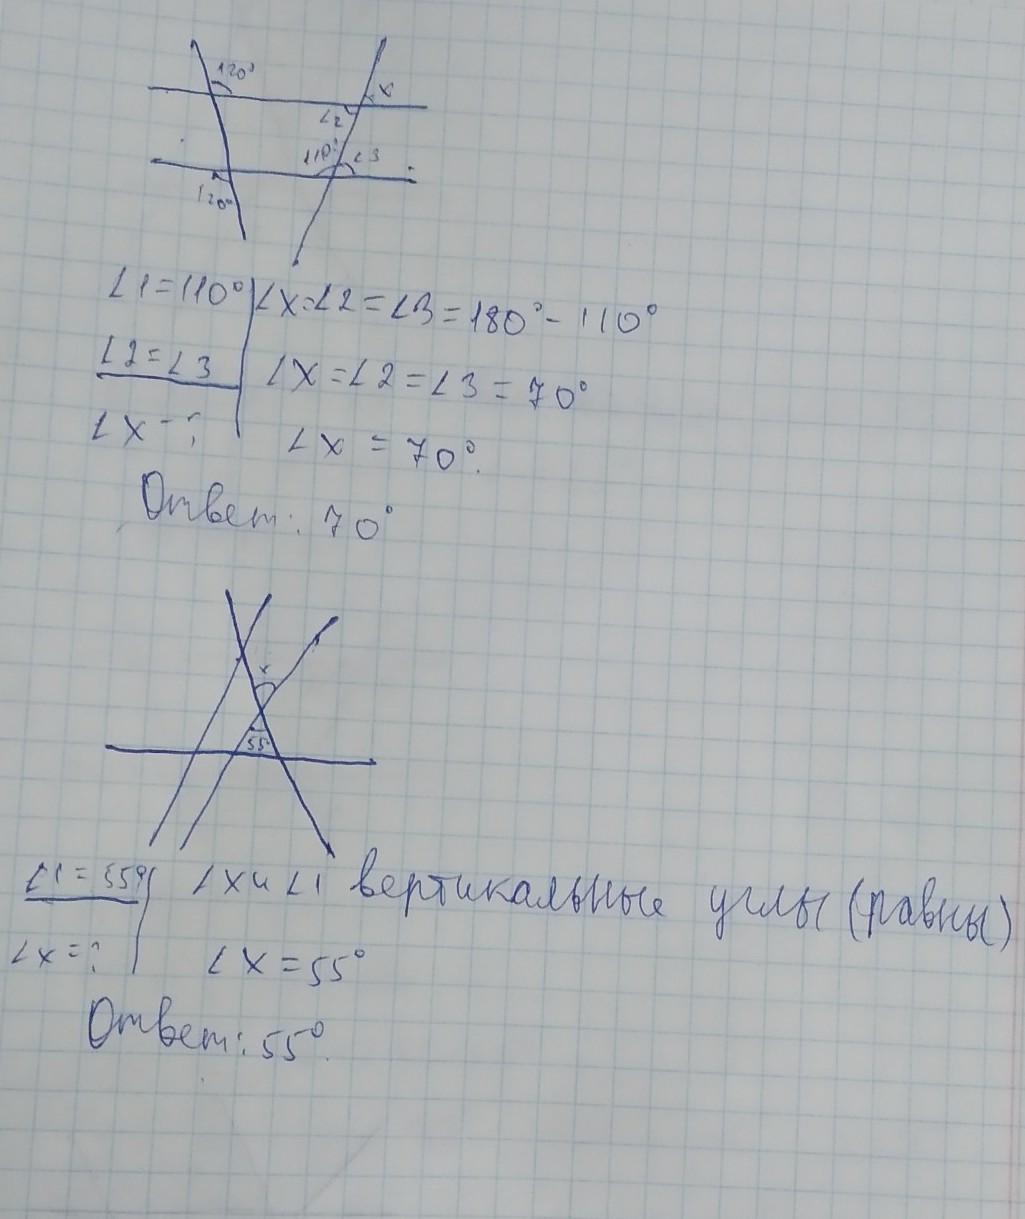 120°
x
∠2
110° ∠3
120°
∠1=110° ∠x=∠2=∠3=180°-110°
∠2=∠3 ∠x=∠2=∠3=70°
∠x-? ∠x=70°.
Ответ: 70°
x
55°
∠1=55° ∠x и ∠1 вертикальные углы (равны)
∠x=? ∠x=55°
Ответ: 55°.